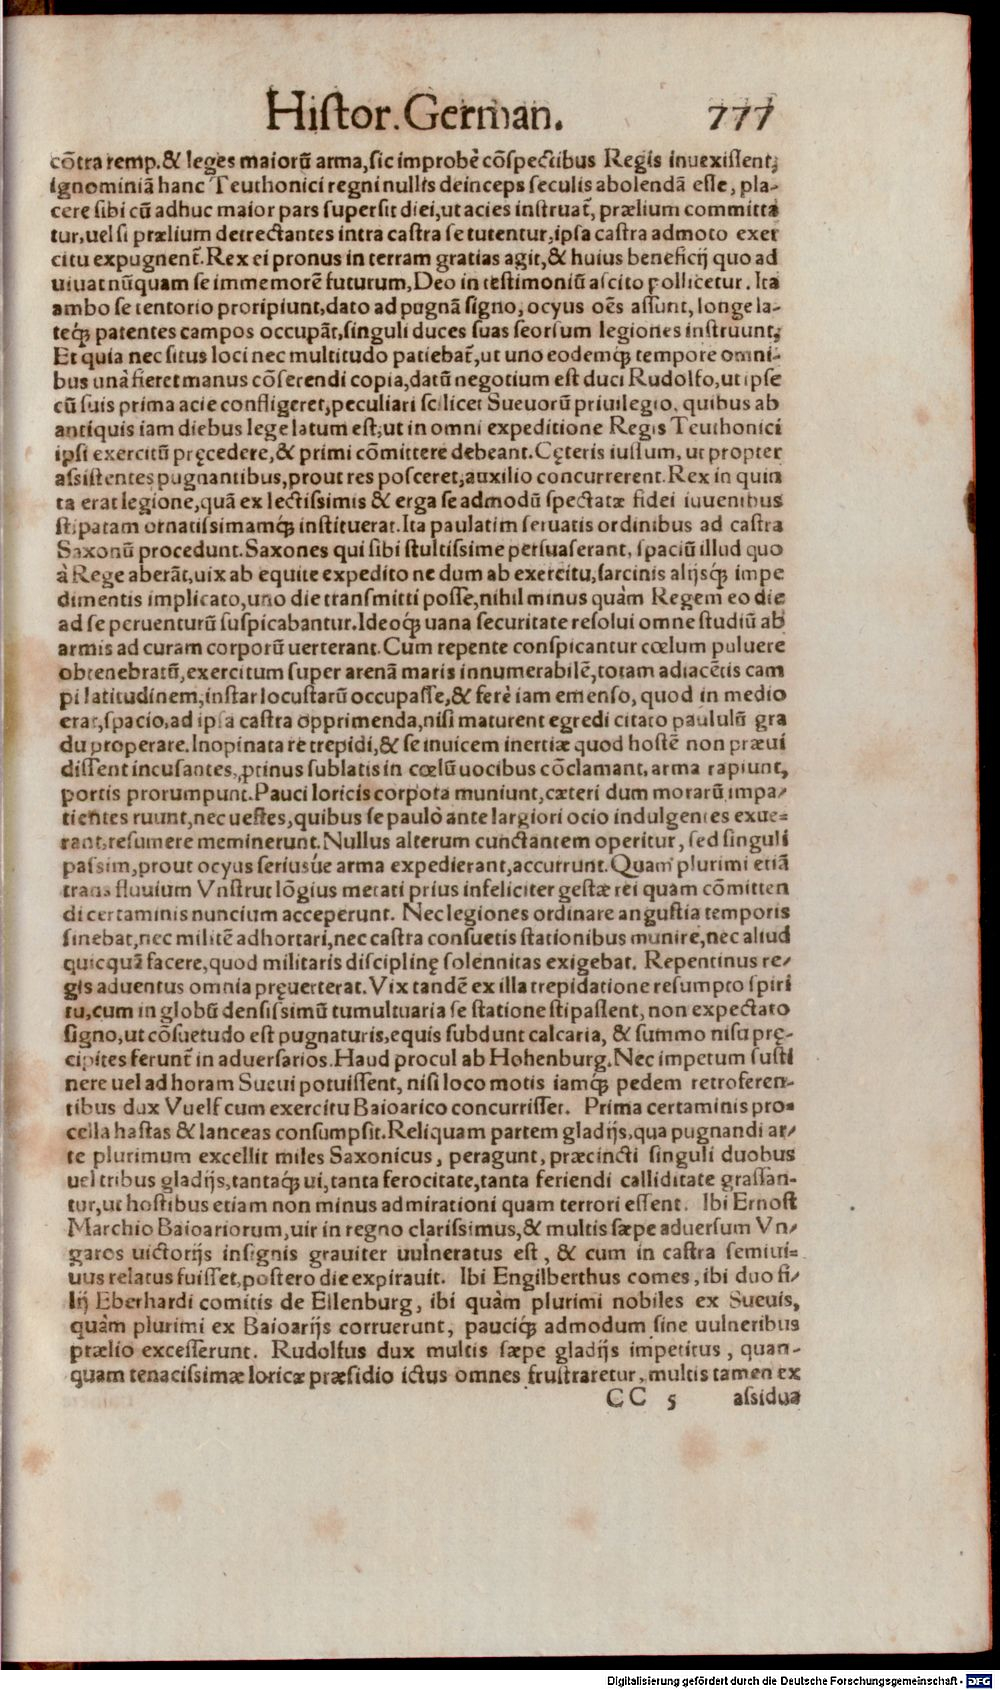 Histor. German. 777
cõtra remp. & leges maiorũ arma, sic improbè cõspectibus Regis inuexissent;
ignominiã hanc Teuthonici regni nullis deinceps seculis abolendã esse, pla-
cere sibi cũ adhuc maior pars supersit diei, ut acies instruat̃, prælium committa
tur, uel si prælium detrectantes intra castra se tutentur, ipsa castra admoto exer
citu expugnent̃. Rex ei pronus in terram gratias agit, & huius beneficij quo ad
uiuat nũquam se immemorẽ futurum, Deo in testimoniũ ascito pollicetur. Ita
ambo se tentorio proripiunt, dato ad pugnã signo, ocyus oẽs assunt, longe la-
teq́; patentes campos occupãt, singuli duces suas seorsum legiones instruunt;
Et quia nec situs loci nec multitudo patiebat̃, ut uno eodemq́; tempore omni-
bus unà fieret manus cõserendi copia, datũ negotium est duci Rudolfo, ut ipse
cũ suis prima acie confligeret, peculiari scilicet Sueuorũ priuilegio, quibus ab
antiquis iam diebus lege latum est, ut in omni expeditione Regis Teuthonici
ipsi exercitũ pręcedere, & primi cõmittere debeant. Cęteris iussum, ut propter
assistentes pugnantibus, prout res posceret, auxilio concurrerent. Rex in quin
ta erat legione, quã ex lectissimis & erga se admodũ spectatæ fidei iuuenibus
stipatam ornatissimamq́; instituerat. Ita paulatim seruatis ordinibus ad castra
Saxonũ procedunt. Saxones qui sibi stultissime persuaserant, spaciũ illud quo
à Rege aberãt, uix ab equite expedito ne dum ab exercitu, sarcinis alijsq́; impe
dimentis implicato, uno die transmitti posse, nihil minus quàm Regem eo die
ad se peruenturũ suspicabantur. Ideoq́; uana securitate resolui omne studiũ ab
armis ad curam corporũ uerterant. Cum repente conspicantur cœlum puluere
obtenebratũ, exercitum super arenã maris innumerabilẽ, totam adiacẽtis cam
pi latitudinem, instar locustarũ occupasse, & ferè iam emenso, quod in medio
erat, spacio, ad ipsa castra opprimenda, nisi maturent egredi citato paululũ gra
du properare. Inopinata re trepidi, & se inuicem inertiæ quod hostẽ non præui
dissent incusantes, ꝓtinus sublatis in cœlũ uocibus cõclamant, arma rapiunt,
portis prorumpunt. Pauci loricis corpora muniunt, cæteri dum morarũ impa-
tientes ruunt, nec uestes, quibus se paulò ante largiori ocio indulgentes exue-
rant, resumere meminerunt. Nullus alterum cunctantem operitur, sed singuli
passim, prout ocyus seriusúe arma expedierant, accurrunt. Quam plurimi etiã
trans fluuium Vnstrut lõgius metati prius infeliciter gestæ rei quam cõmitten
di certaminis nuncium acceperunt. Nec legiones ordinare angustia temporis
sinebat, nec militẽ adhortari, nec castra consuetis stationibus munire, nec aliud
quicquã facere, quod militaris disciplinę solennitas exigebat. Repentinus re-
gis aduentus omnia pręuerterat. Vix tandẽ ex illa trepidatione resumpto spiri
tu, cum in globũ densissimũ tumultuaria se statione stipassent, non expectato
signo, ut cõsuetudo est pugnaturis, equis subdunt calcaria, & summo nisu prę-
cipites ferunt̃ in aduersarios. Haud procul ab Hohenburg. Nec impetum susti
nere uel ad horam Sueui potuissent, nisi loco motis iamq́; pedem retroferen-
tibus dux Vuelf cum exercitu Baioarico concurrisset. Prima certaminis pro-
cella hastas & lanceas consumpsit. Reliquam partem gladijs, qua pugnandi ar-
te plurimum excellit miles Saxonicus, peragunt, præcincti singuli duobus
uel tribus gladijs, tantaq́; ui, tanta ferocitate, tanta feriendi calliditate grassan-
tur, ut hostibus etiam non minus admirationi quam terrori essent. Ibi Ernost
Marchio Baioariorum, uir in regno clarissimus, & multis sæpe aduersum Vn-
garos uictorijs insignis grauiter uulneratus est, & cum in castra semiui-
uus relatus fuisset, postero die expirauit. Ibi Engilberthus comes, ibi duo fi-
lij Eberhardi comitis de Ellenburg, ibi quàm plurimi nobiles ex Sueuis,
quàm plurimi ex Baioarijs corruerunt, pauciq́; admodum sine uulneribus
prælio excesserunt. Rudolfus dux multis sæpe gladijs impetitus, quan-
quam tenacissimæ loricæ præsidio ictus omnes frustraretur, multis tamen ex
CC 5 assidua
Digitalisierung gefördert durch die Deutsche Forschungsgemeinschaft - DFG